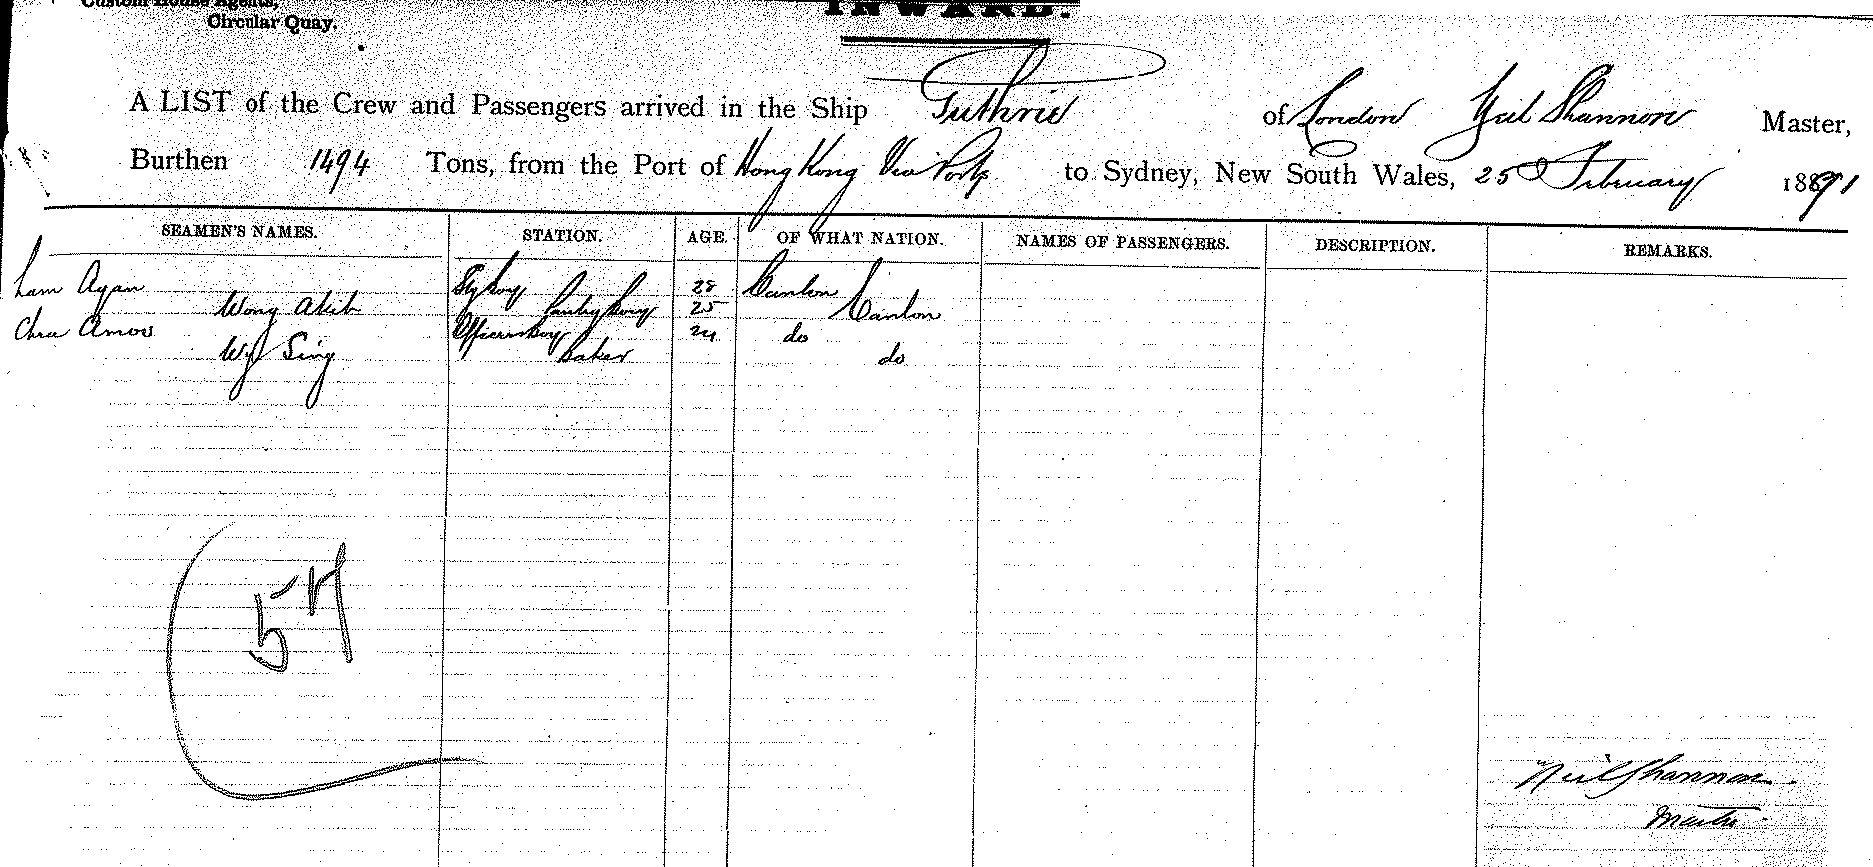 Custom House Agents,
Circular Quay.
INWARD.
A LIST of the Crew and Passengers arrived in the Ship Guthrie of London Neil Shannon Master,
Burthen 1494 Tons, from the Port of Hong Kong Via Ports to Sydney, New South Wales, 25 February 1891
SEAMEN'S NAMES. STATION. AGE. OF WHAT NATION. NAMES OF PASSENGERS. DESCRIPTION. REMARKS.
Lam Ayan 28 Canton
Wong Akit Pantry boy 25 Canton
Chu Amow Officers boy 24 do
Sing Baker do
57
Neil Shannon
Master